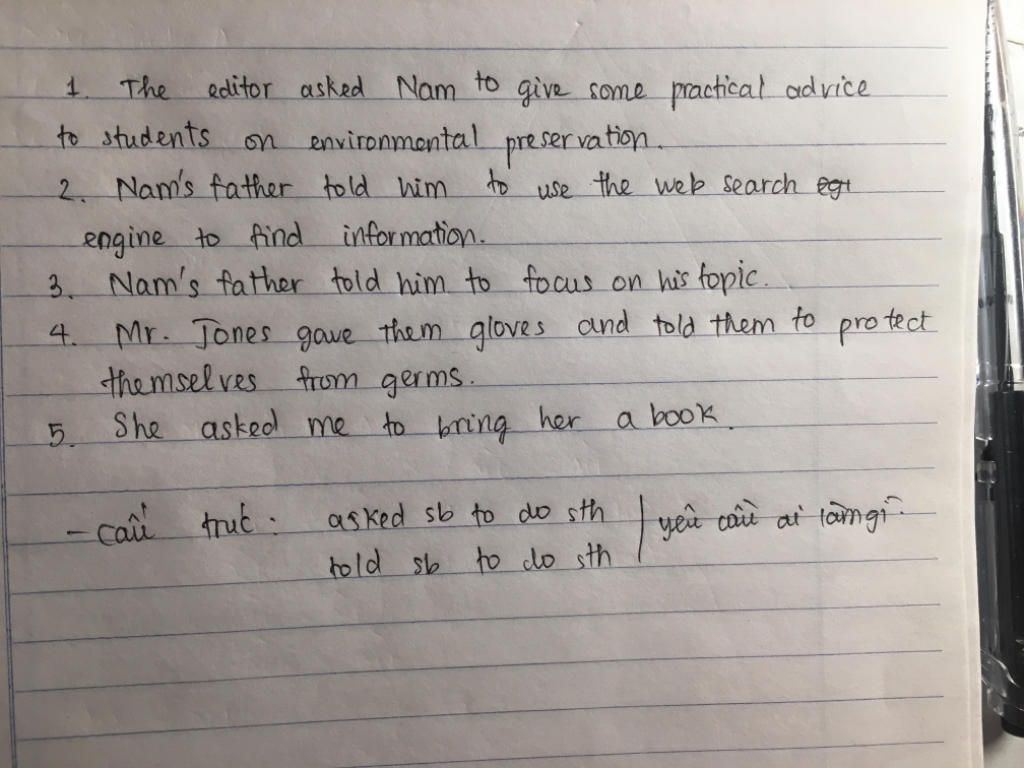 1. The editor asked Nam to give some practical advice
to students on environmental preservation.
2. Nam's father told him to use the web search egi
engine to find information.
3. Nam's father told him to focus on his topic.
4. Mr. Jones gave them gloves and told them to protect
themselves from germs.
5. She asked me to bring her a book.
- cấu trúc: asked sb to do sth | yêu cầu ai làm gì.
told sb to do sth